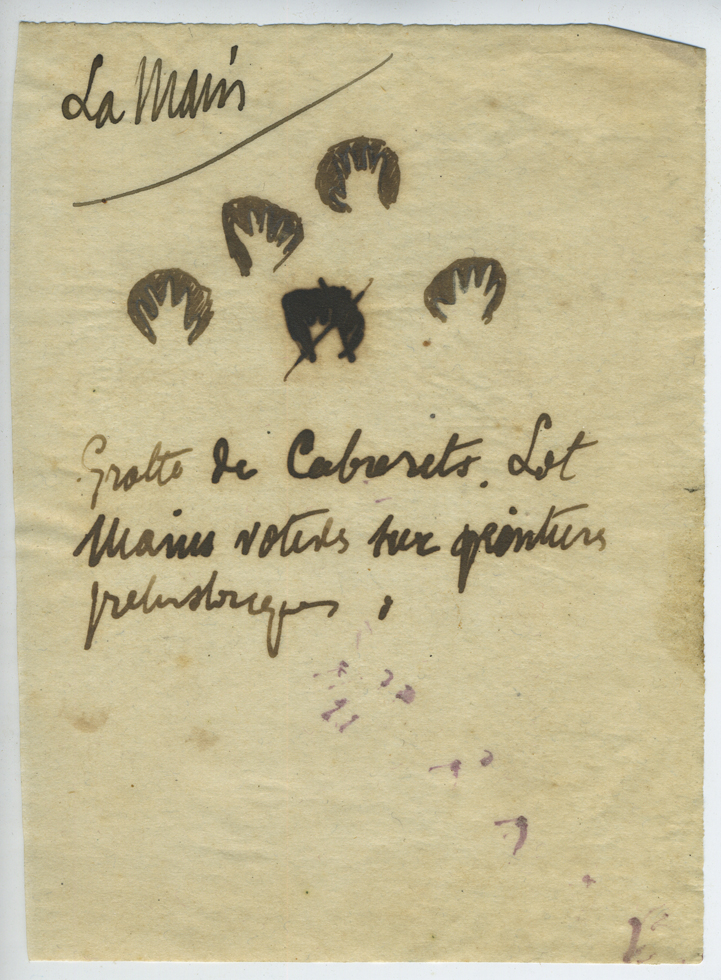 La Main
Grotte de Cabrerets. Lot
Mains votives sur peintures
prehistoriques.